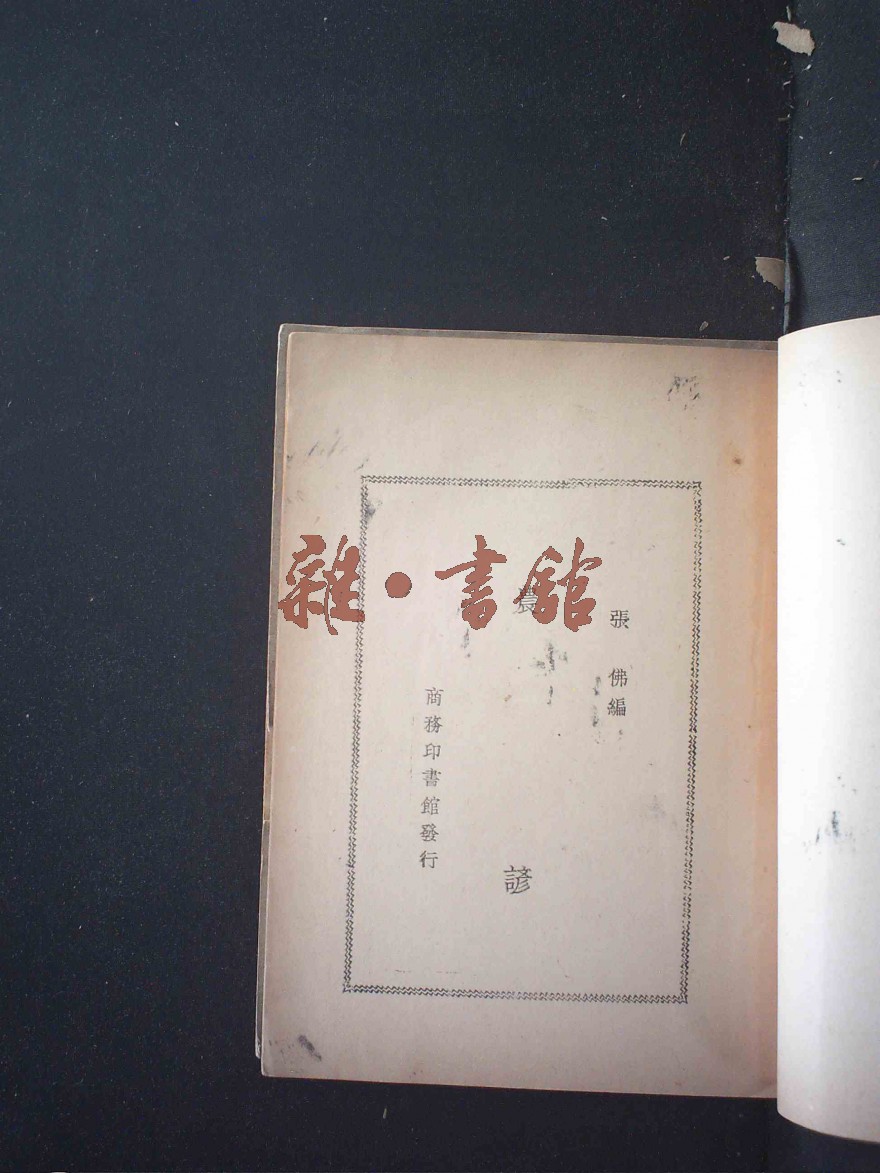 張佛編
農諺
商務印書館發行
雜·書館